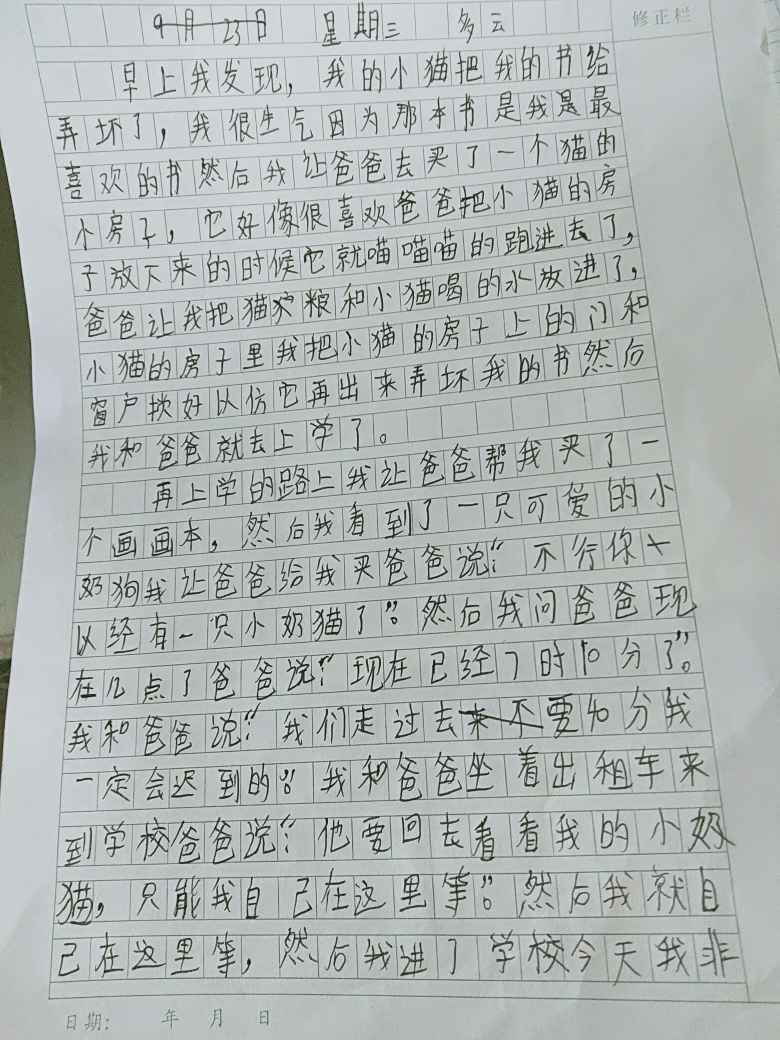 9月23日 星期三 多云
修正栏
早上我发现，我的小猫把我的书给
弄坏了，我很生气因为那本书是我是最
喜欢的书然后我让爸爸去买了一个猫的
小房子，它好像很喜欢爸爸把小猫的房
子放下来的时候它就喵喵喵的跑进去了，
爸爸让我把猫粮和小猫喝的水放进了，
小猫的房子里我把小猫的房子上的门和
窗户锁好以仿它再出来弄坏我的书然后
我和爸爸就去上学了。
再上学的路上我让爸爸帮我买了一
个画画本，然后我看到了一只可爱的小
奶狗我让爸爸给我买爸爸说“不行你
以经有一只小奶猫了”。然后我问爸爸现
在几点了爸爸说“现在已经7时10分了”。
我和爸爸说“我们走过去要40分我
一定会迟到的”。我和爸爸坐着出租车来
到学校爸爸说“他要回去看看我的小奶
猫，只能我自己在这里等”。然后我就自
己在这里等，然后我进了学校今天我非
日期： 年 月 日